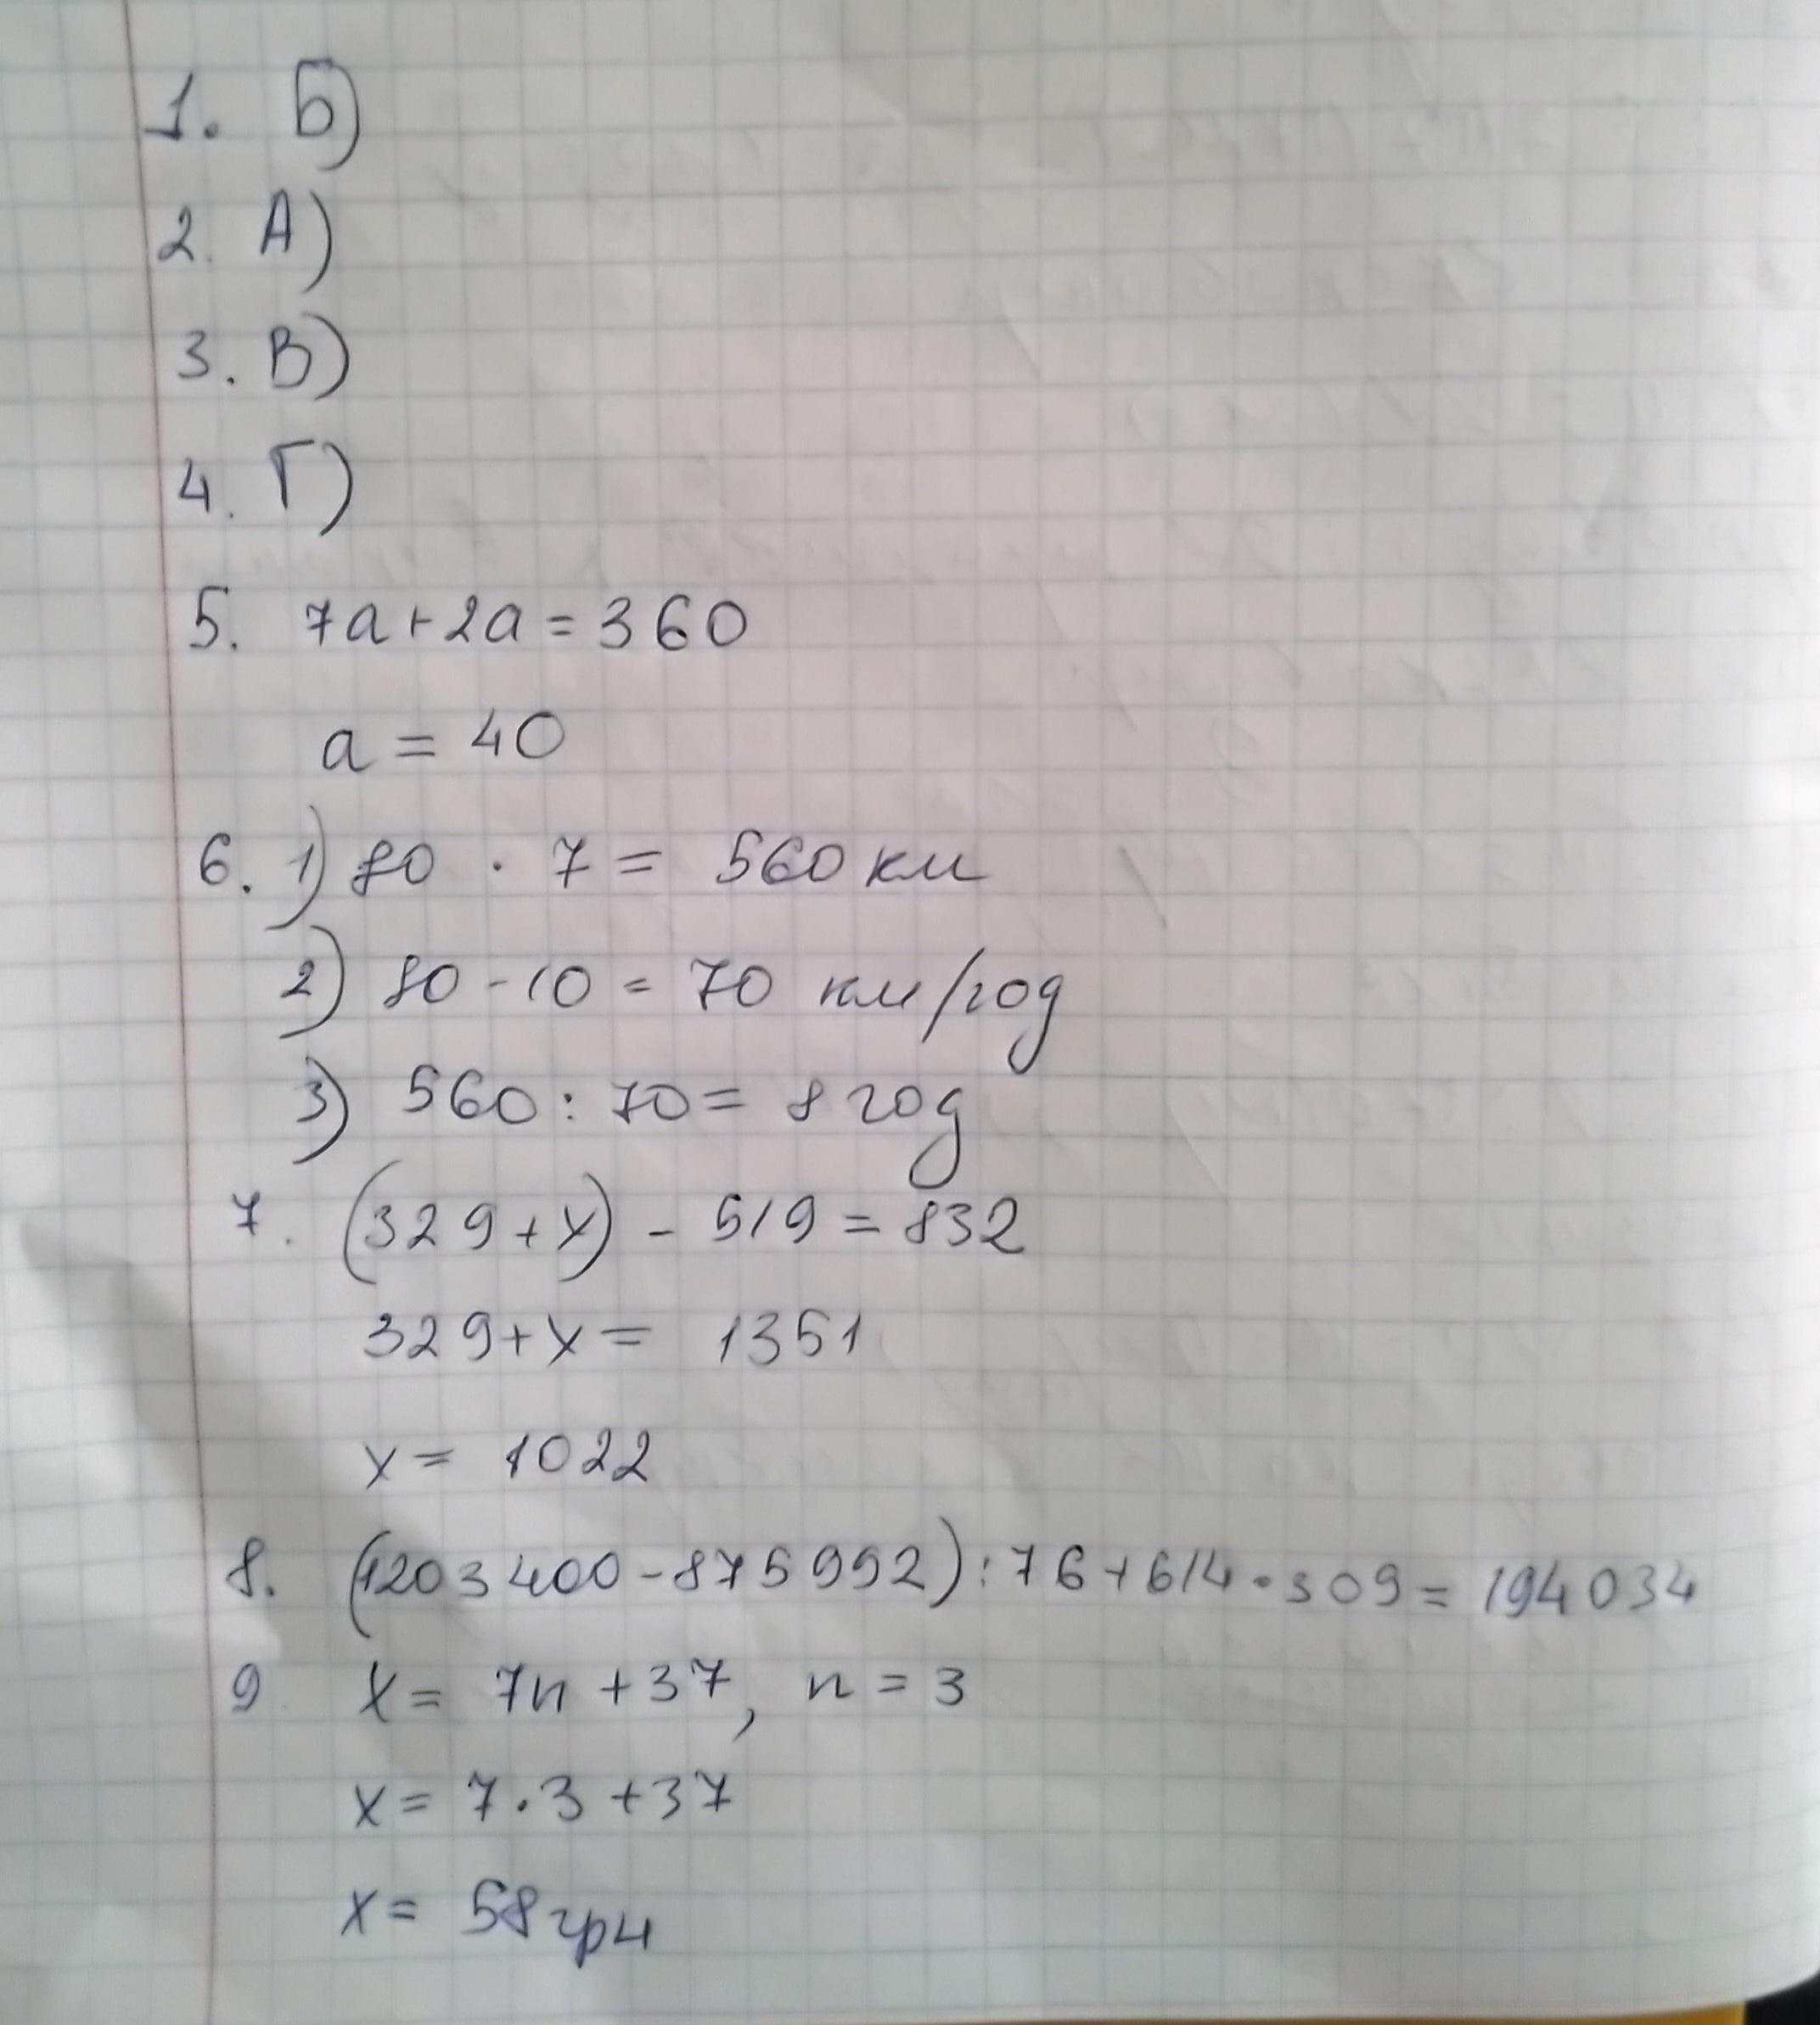 1. Б)
2. А)
3. В)
4. Г)
5. 7a+2a=360
a = 40
6. 1) 80 · 7 = 560 км
2) 80 - 10 = 70 км/год
3) 560 : 70 = 8 год
7. (329+x) - 519 = 832
329+x = 1351
x = 1022
8. (1203400-875992):76+614·309=194034
9 x = 7n +37, n = 3
x = 7·3 +37
x = 58 грн